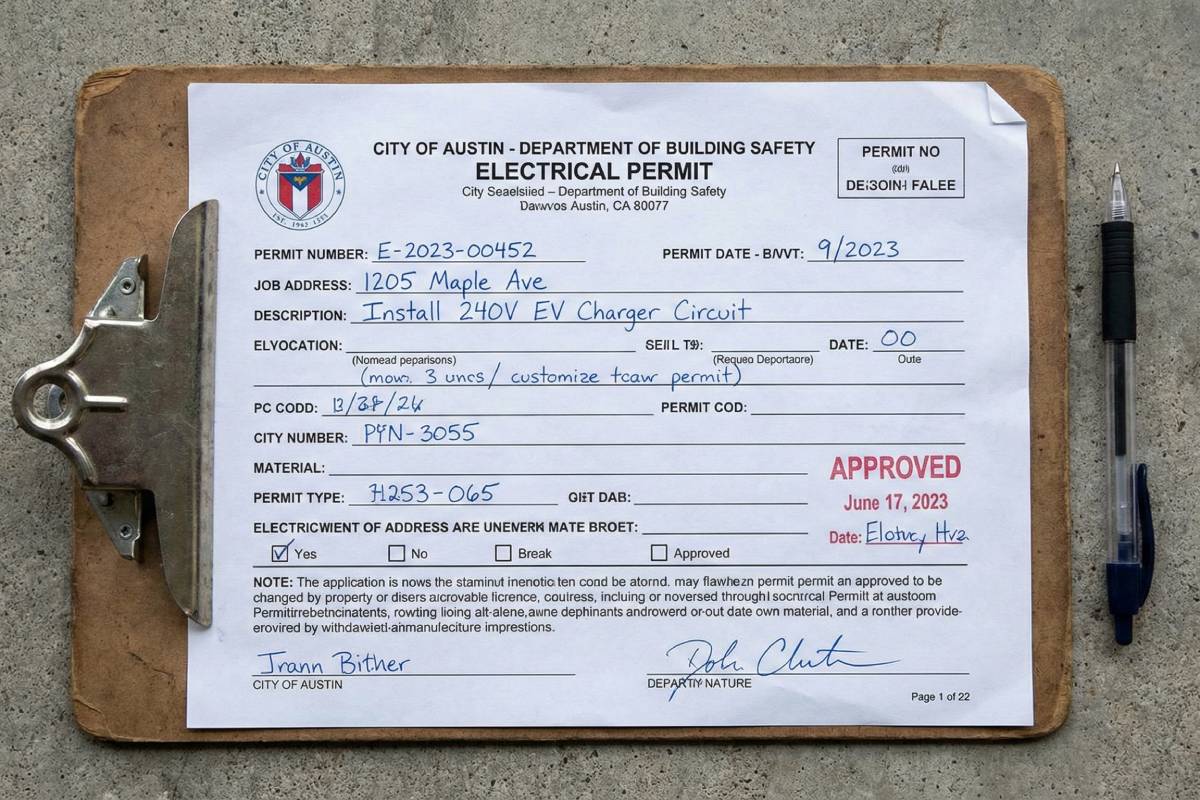 CITY OF AUSTIN
CITY OF AUSTIN - DEPARTMENT OF BUILDING SAFETY
ELECTRICAL PERMIT
City Seaelsiied – Department of Building Safety
Dawvos Austin, CA 80077
PERMIT NO
PERMIT NUMBER: E-2023-00452
PERMIT DATE - B/VVT: 9/2023
JOB ADDRESS: 1205 Maple Ave
DESCRIPTION: Install 240V EV Charger Circuit
ELYOCATION:
DATE: 00
(Nomead peparisons) (Requeo Deportaore) Oute
3 uncs / customize tcaw permit)
PC CODD:
PERMIT COD:
CITY NUMBER: PYN-3055
MATERIAL:
APPROVED
PERMIT TYPE: 71253-065
June 17, 2023
ELECTRICWIENT OF ADDRESS ARE UNEWERK MATE BROET:
Date:
Yes No Break Approved
NOTE: The application is nows the staminut inenotic ten cond be atornd. may flawhezn permit permit an approved to be
changed by property or disers aucrovable ficrence, coulress, incluing or noversed through socnrcal Permilt at austoom
Permitirrebetncinatents, rowting lioing alt-alene,awne dephinants androwerd or-out date own material, and a ronther provide-
erovired by withdawietl-ahmanuleciture imprestions.
Jrann Bither
CITY OF AUSTIN
NATURE
Page 1 of 22